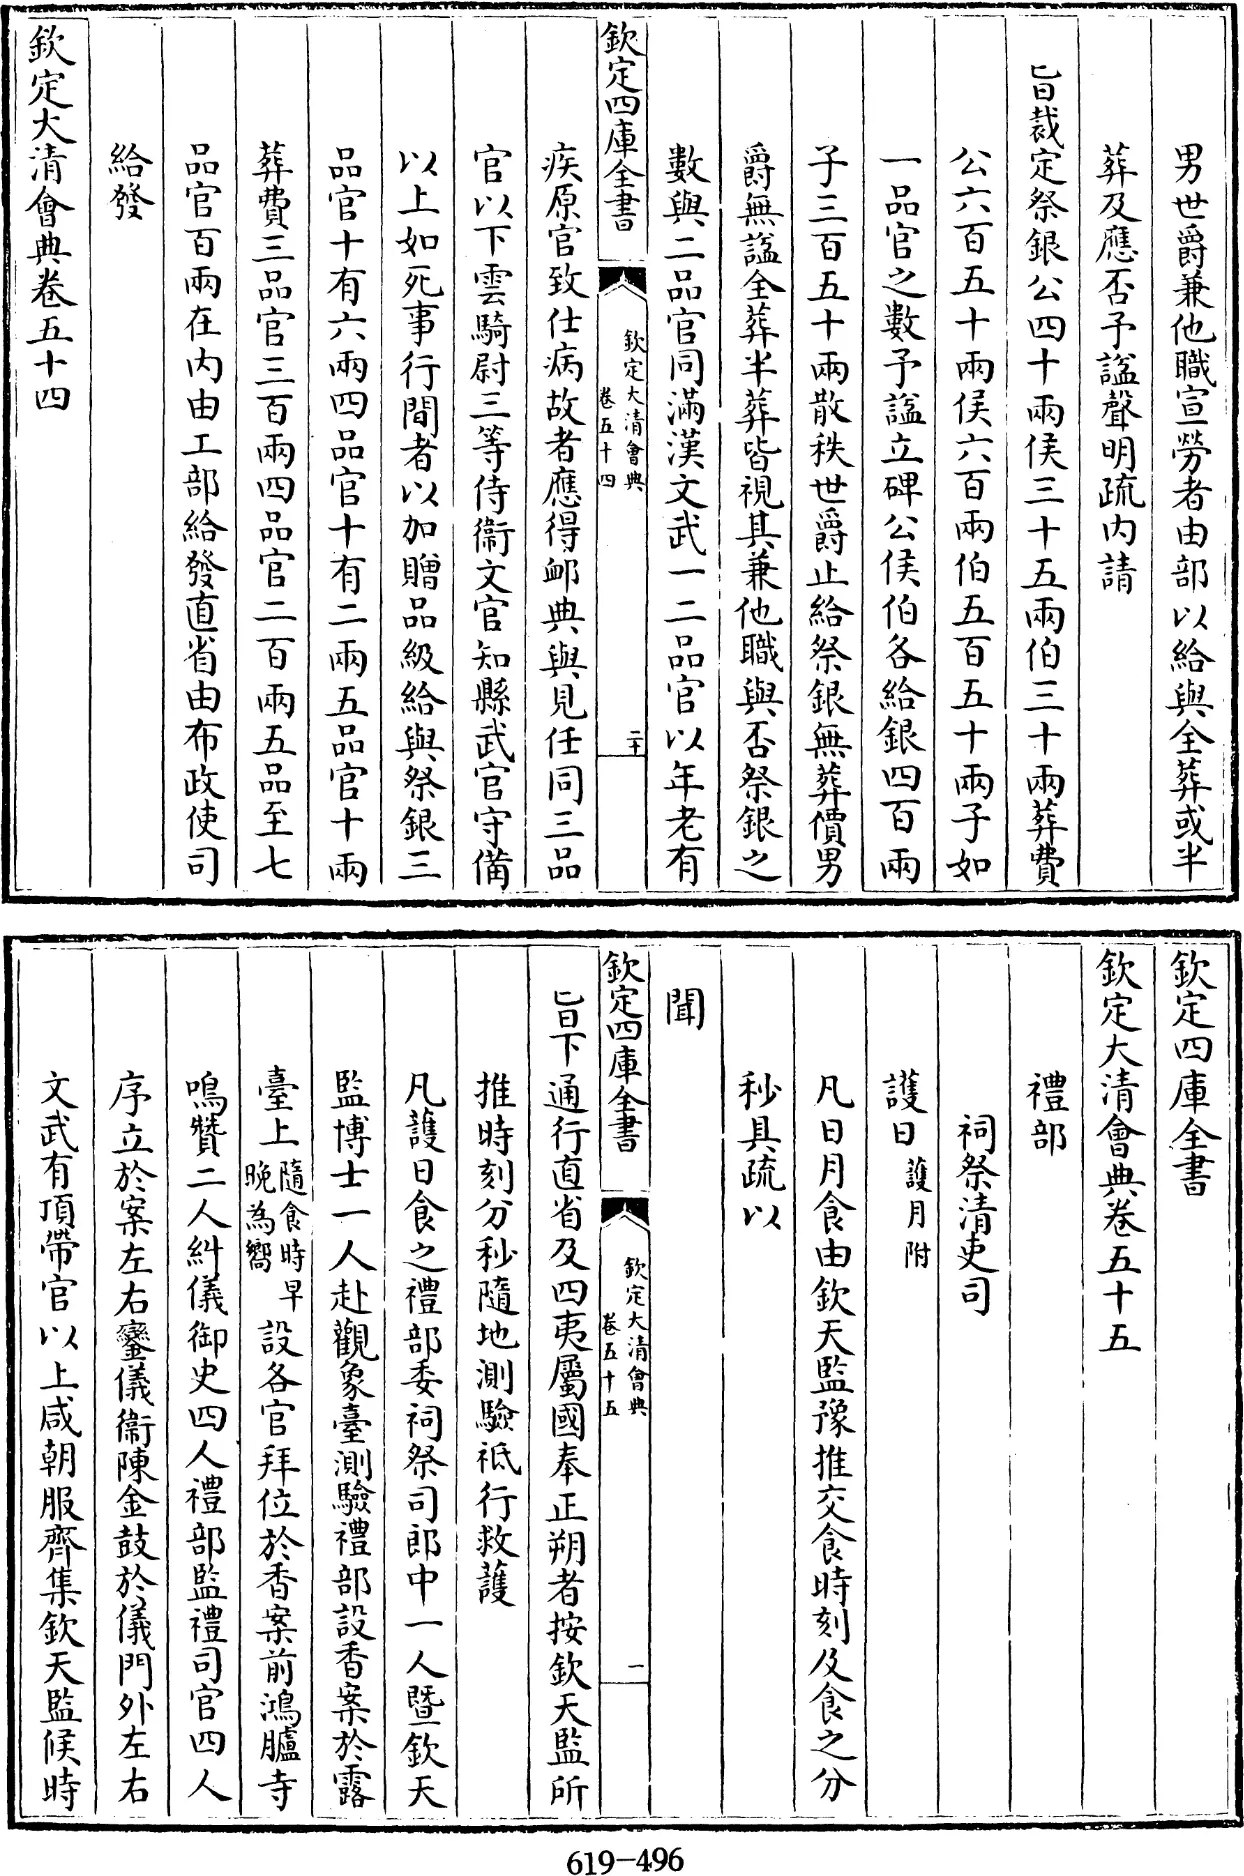 男世爵兼他職宣勞者由部以給與全葬或半
葬及應否予諡聲明疏內請
旨裁定祭銀公四十兩侯三十五兩伯三十兩葬費
公六百五十兩侯六百兩伯五百五十兩子如
一品官之數予諡立碑公侯伯各給銀四百兩
子三百五十兩散秩世爵止給祭銀無葬價男
爵無諡全葬半葬皆視其兼他職與否祭銀之
數與二品官同滿漢文武一二品官以年老有
欽定四庫全書
欽定大清會典
卷五十四
二十
疾原官致仕病故者應得䘏典與見任同三品
官以下雲騎尉三等侍衞文官知縣武官守備
以上如死事行間者以加贈品級給與祭銀三
品官十有六兩四品官十有二兩五品官十兩
葬費三品官三百兩四品官二百兩五品至七
品官百兩在內由工部給發直省由布政使司
給發
欽定大清會典卷五十四
欽定四庫全書
欽定大清會典卷五十五
禮部
祠祭清吏司
護日護月附
凡日月食由欽天監豫推交食時刻及食之分
秒具疏以
聞
欽定四庫全書
欽定大清會典
卷五十五
一
旨下通行直省及四夷屬國奉正朔者按欽天監所
推時刻分秒隨地測驗祗行救護
凡護日食之禮部委祠祭司郎中一人暨欽天
監博士一人赴觀象臺測驗禮部設香案於露
臺上隨食時早晚為嚮設各官拜位於香案前鴻臚寺
鳴贊二人糾儀御史四人禮部監禮司官四人
序立於案左右鑾儀衞陳金鼓於儀門外左右
文武有頂帶官以上咸朝服齊集欽天監候時
619-496